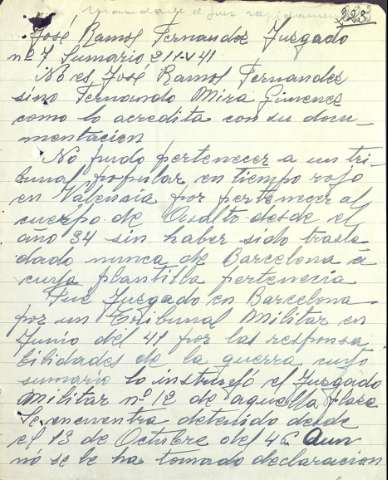 223
José Ramos Fernandez Juzgado
nº 7 Sumario 211-V 41
No es José Ramos Fernandez
sino Fernando Mira Gimenez
como lo acredita con su docu-
mentacion
No pudo pertenecer a un tri-
bunal popular en tiempo rojo
en Valencia por pertenecer al
cuerpo de Asalto desde el
año 34 sin haber sido trasla-
dado nunca de Barcelona a
cuya plantilla pertenecia
Fue Juzgado en Barcelona
por un Tribunal Militar en
Junio del 41 por las responsa
bilidades de la guerra cuyo
sumario lo instruyó el Juzgado
Militar nº 12 de aquella plaza
Se encuentra detenido desde
el 13 de Octubre del 42 Aun
no se le ha tomado declaracion